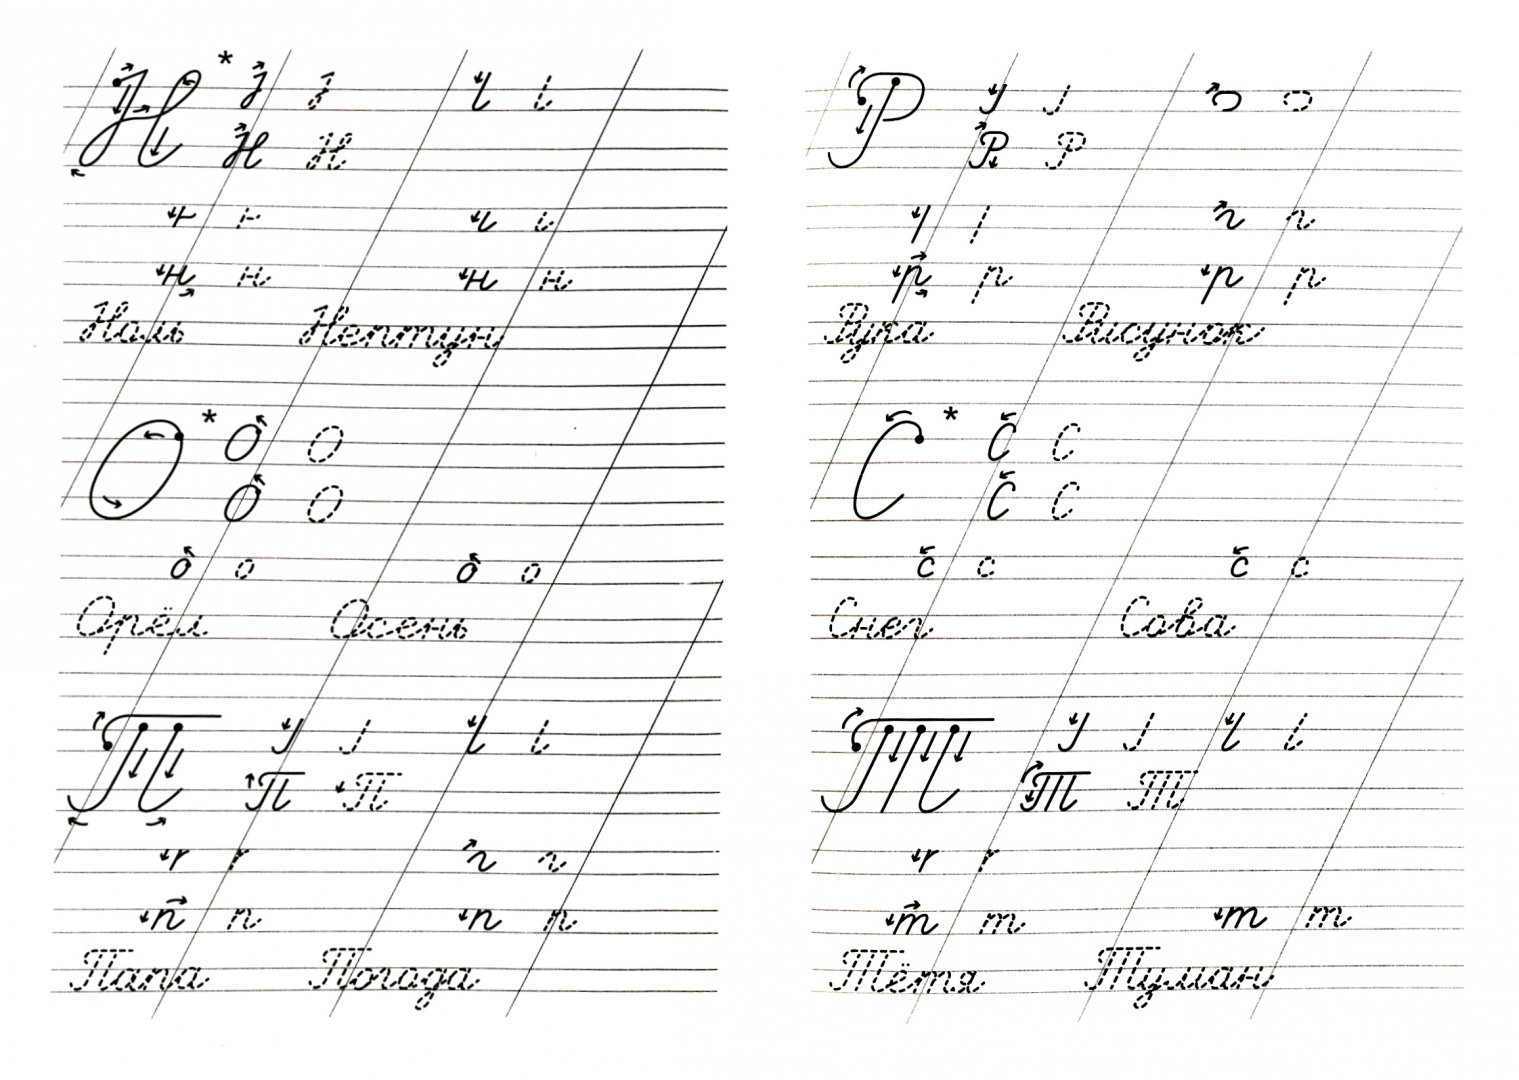 Н *
Н Н
н н н н
Ноль Нептун
О * О О
О О
о о о о
Орёл Осень
П
П П
п п п п
Папа Погода
Р
Р Р
р р р р
Рука Рисунок
С * С С
С С
с с с с
Снег Сова
Т
Т Т
т т т т
Тётя Туман